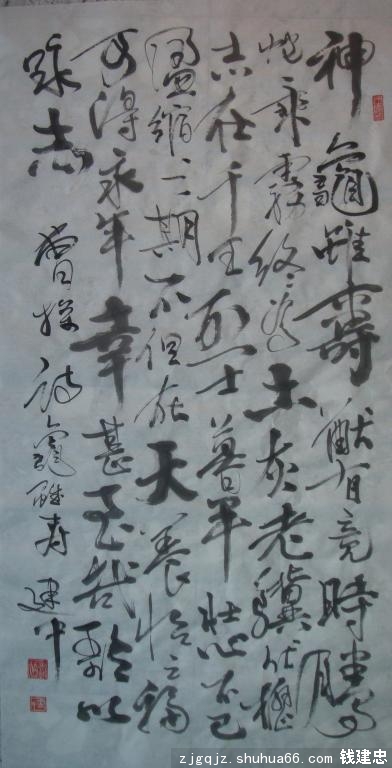 神龜雖壽猷有竟時騰
蛇乘霧終為土灰老驥伏櫪
志在千里烈士暮年壯心不已
盈縮之期不但在天養怡之福
可得永年幸甚至哉歌以
詠志 曹操詩龜雖寿 建中
zjgqjz.shuhua66.com 钱建忠